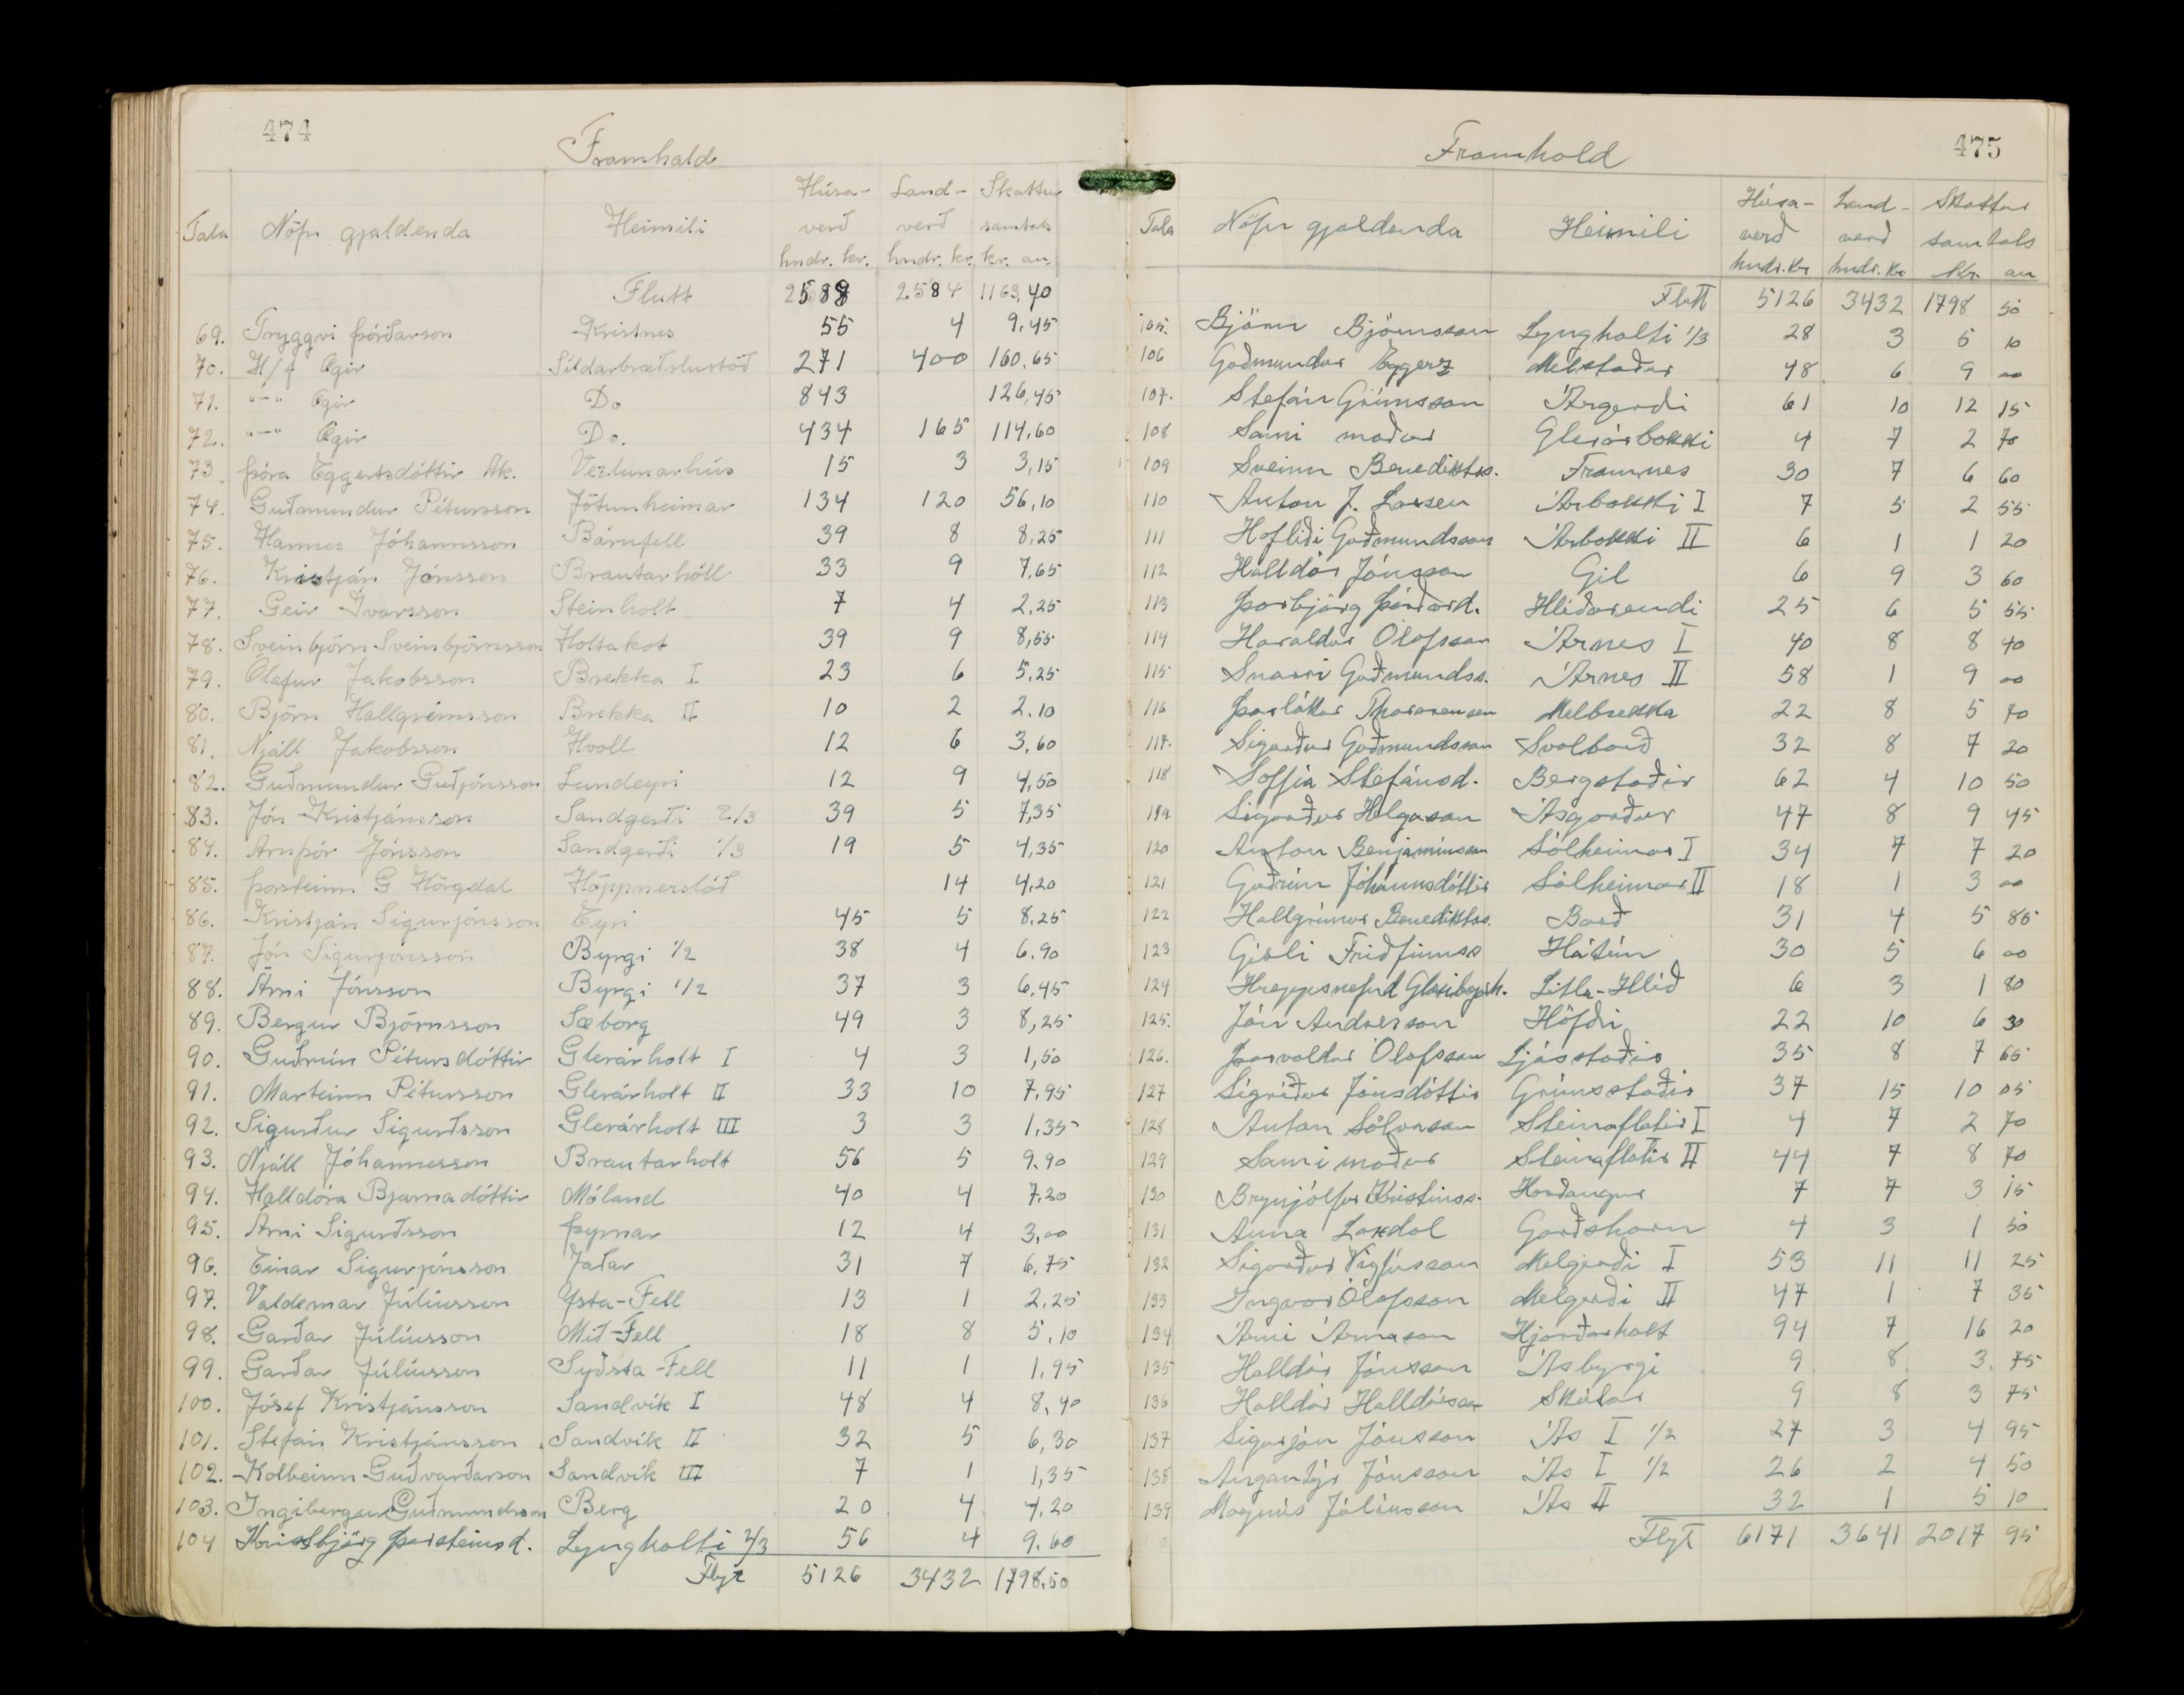 474
Framhald
Tala Nöfn gjaldenda Heimili Húsa- verð hndr. kr. Land- verð hndr. kr. Skattur samtals kr. au.
Flutt 2588 2584 1163,40
69. Tryggvi Þórðarson Kristnes 55 4 9,45
70. H/f Ægir Síldarbræðslustöð 271 400 160,65
71. "—" Ægir Do 843 126,45
72. "—" Ægir Do. 434 165 114,60
73. Þóra Eggertsdóttir Ak. Verzlunarhús 15 3 3,15
74. Guðmundur Pétursson Jötunheimar 134 120 56,10
75. Hannes Jóhannsson Bárufell 39 8 8,25
76. Kristján Jónsson Brautarhóll 33 9 7,65
77. Geir Ívarsson Steinholt 7 4 2,25
78. Sveinbjörn Sveinbjörnsson Holtakot 39 9 8,55
79. Ólafur Jakobsson Brekka I 23 6 5,25
80. Björn Hallgrímsson Brekka II 10 2 2,10
81. Njáll Jakobsson Hvoll 12 6 3,60
82. Guðmundur Guðjónsson Lundeyri 12 9 4,50
83. Jón Kristjánsson Sandgerði 2/3 39 5 7,35
84. Arnþór Jónsson Sandgerði 1/3 19 5 4,35
85. Þorsteinn G Hörgdal Höppnerslóð 14 4,20
86. Kristján Sigurjónsson Eyri 45 5 8,25
87. Jón Sigurjónsson Byrgi 1/2 38 4 6,90
88. Árni Jónsson Byrgi 1/2 37 3 6,45
89. Bergur Björnsson Sæborg 49 3 8,25
90. Guðrún Pétursdóttir Glerárholt I 4 3 1,50
91. Marteinn Pétursson Glerárholt II 33 10 7,95
92. Sigurður Sigurðsson Glerárholt III 3 3 1,35
93. Njáll Jóhannesson Brautarholt 56 5 9,90
94. Halldóra Bjarnadóttir Móland 40 4 7,20
95. Árni Sigurðsson Þyrnar 12 4 3,00
96. Einar Sigurjónsson Jaðar 31 7 6,75
97. Valdemar Júlíusson Ysta-Fell 13 1 2,25
98. Garðar Júlíusson Mið-Fell 18 8 5,10
99. Garðar Júlíusson Syðsta-Fell 11 1 1,95
100. Jósef Kristjánsson Sandvík I 48 4 8,40
101. Stefán Kristjánsson Sandvík II 32 5 6,30
102. Kolbeinn Guðvarðarson Sandvík III 7 1 1,35
103. Ingibergur Guðmundsson Berg 20 4 4,20
104 Kristbjörg Þorsteinsd. Lyngholti 2/3 56 4 9.60
Flyt 5126 3432 1798.50
475
Framhald
Tala Nöfn gjaldenda Heimili Húsa- verð hndr. kr Land- verð hndr. kr Skattur samtals Kr. au
Flutt 5126 3432 1798 50
105. Björn Björnsson Lyngholti 1/3 28 3 5 10
106 Guðmundur Eggerz Melstaður 48 6 9 00
107. Stefán Grímsson Árgerði 61 10 12 15
108 Sami maður Glerárbakki 4 7 2 70
109 Sveinn Benediktss. Framnes 30 7 6 60
110 Anton J. Larsen Árbakki I 7 5 2 55
111 Hafliði Guðmundsson Árbakki II 6 1 1 20
112 Halldór Jónsson Gil 6 9 3 60
113 Þorbjörg Þórðard. Hlíðarendi 25 6 5 55
114 Haraldur Ólafsson Árnes I 40 8 8 40
115 Snorri Guðmundss. Árnes II 58 1 9 00
116 Þorlákur Thorarensen Melbrekka 22 8 5 70
117. Sigurður Guðmundsson Svalbarð 32 8 7 20
118 Soffía Stefánsd. Bergstaðir 62 4 10 50
119. Sigurður Helgason Ásgarður 47 8 9 45
120 Anton Benjamínsson Sólheimar I 34 7 7 20
121 Guðrún Jóhannsdóttir Sólheimar II 18 1 3 00
122 Hallgrímur Benediktss. Barð 31 4 5 85
123 Gísli Friðfinnss Hátún 30 5 6 00
124 Hreppsnefnd Glæsibæjarh. Litla-Hlíð 6 3 1 80
125. Jón Andresson Höfði 22 10 6 30
126. Þorvaldur Ólafsson Ljásstaðir 35 8 7 65
127 Sigríður Jónsdóttir Grímsstaðir 37 15 10 05
128 Antan Sölvason Steinaflatir I 4 7 2 70
129 Sami maður Steinaflatir II 44 7 8 70
130 Brynjólfur Kristinss. Harðangur 7 7 3 15
131 Anna Laxdal Garðshorn 4 3 1 50
132 Sigurður Vigfússon Melgerði I 53 11 11 25
133 Ingvar Ólafsson Melgerði II 47 1 7 35
134 Árni Árnason Hjarðarholt 94 7 16 20
135 Halldór Jónsson Ásbyrgi 9 8 3 75
136 Halldór Halldórsson Skútar 9 8 3 75
137 Sigurjón Jónsson Ás I 1/2 27 3 4 95
138 Angantýr Jónsson Ás I 1/2 26 2 4 50
139 Magnús Júlíusson Ás II 32 1 5 10
Flyt 6171 3641 2017 95